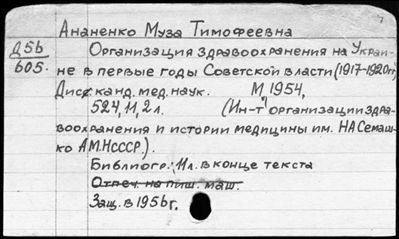 Ананенко Муза Тимофеевна
Д56
605.
Организация здравоохранения на Украи-
не в первые годы Советской власти (1917-1920гг)
Дисс. канд. мед. наук. М 1954,
524, 11, 2 л. (Ин-т организации здра-
воохранения и истории медицины им. НА Семаш-
ко АМН СССР.).
Библиогр.: 11л. в конце текста
Отпеч. на пиш. маш.
Защ. в 1956г.